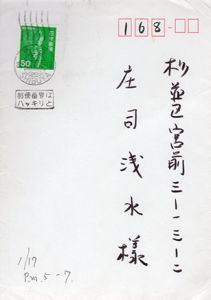 168-
杉並区宮前三-一三-二
庄司浅水様
50
郵便番号は
ハッキリと
1/17
P.m. 5-7.